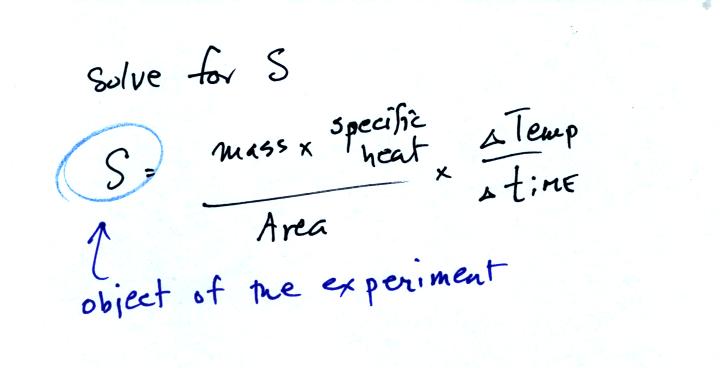 Solve for S
S = mass x specific heat x Δ Temp
Area Δ time
object of the experiment